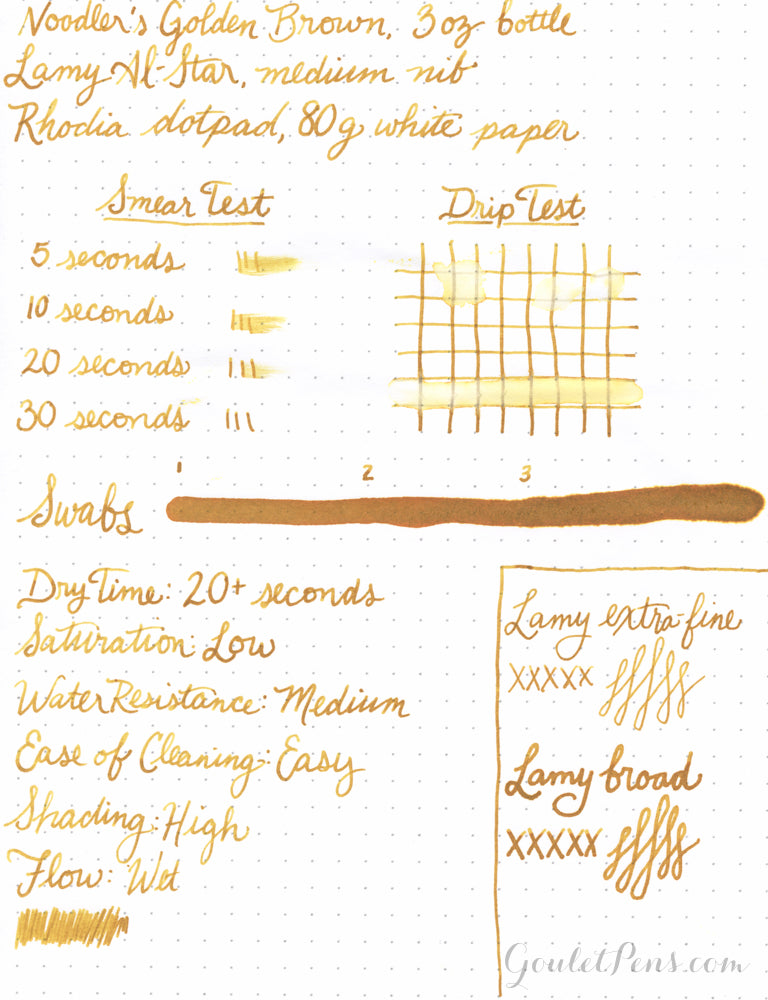 Noodler's Golden Brown, 3 oz bottle
Lamy Al-Star, medium nib
Rhodia dotpad, 80g white paper
Smear Test
5 seconds
10 seconds
20 seconds
30 seconds
Drip Test
1 2 3
Swabs
Dry Time: 20+ seconds
Saturation: Low
Water Resistance: Medium
Ease of Cleaning: Easy
Shading: High
Flow: Wet
Lamy extra-fine
xxxxx
Lamy broad
xxxxx
GouletPens.com